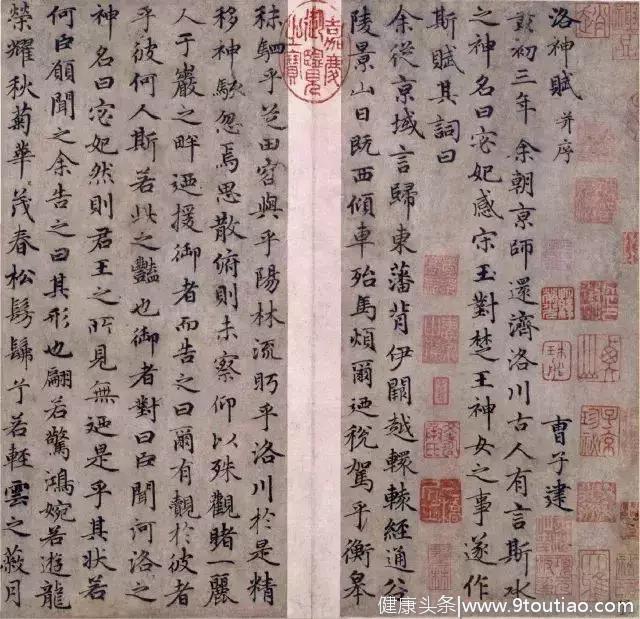 洛神賦 并序 曹子建
初三年余朝京師還濟洛川古人有言斯水
之神名曰宓妃感宋玉對楚王神女之事遂作
斯賦其詞曰
余從京域言歸東藩背伊闕越轘轅經通谷
陵景山日既西傾車殆馬煩爾迺稅駕乎衡皋
嘉慶御覽之寶
秣駟乎芝田容與乎陽林流眄乎洛川於是精
移神駭忽焉思散俯則未察仰以殊觀睹一麗
人于巖之畔迺援御者而告之曰爾有覿於彼者
乎彼何人斯若此之豔也御者對曰臣聞河洛之
神名曰宓妃然則君王之所見無迺是乎其狀若
何臣願聞之余告之曰其形也翩若驚鴻婉若遊龍
榮耀秋菊華茂春松髣髴兮若輕雲之蔽月
健康头条/www.9toutiao.com